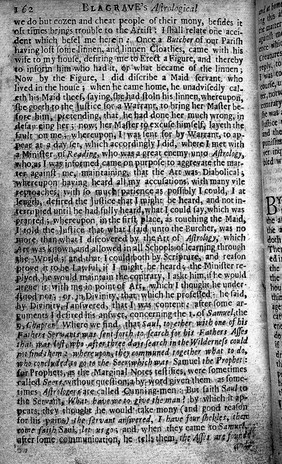 162 BLAGRAVE's Astrological
we do but cozen and cheat people of their mony, besides it
oft times brings trouble to the Artist: I shall relate one acc-
ident which befel me herein: Once a Butcher of our Parish
having lost some linnen, and linnen Cloathes, came with his
wife to my house, desiring me to Erect a Figure, and thereby
to inform him who had it, or what became of the linnen:
Now by the Figure, I did discribe a Maid servant, who
lived in the house; when he came home, he unadvisedly cal-
eth his Maid theef, saying, she had stoln his linnen, whereupon,
she goeth to the Justice for a Warrant, to bring her Master be-
fore him, pretending, that he had done her much wrong, in
defaming her; now her Master to excuse himself, layeth the
fault on me: whereupon, I was sent for by Warrant, to ap-
pear at a day set, which accordingly I did, where I met with
a Minister of Reading, who was a great enemy unto Astrology,
who, as I was informed came on purpose to aggravate the mat-
ter against me, maintaining, that the Art was Diabolical;
whereupon having heard all my accusations with many vile
reproaches, with as much patience as possibly I could, I at
length, desired the Justice that I might be heard, and not in-
terrupted till he had fully heard, what I could say, which was
granted; whereupon, in the first place, as touching the Maid,
I told the Justice that what I said unto the Butcher, was no
more than what I discovered by the Art of Astrology, which
Art was known, and allowed in all Schools of learning through
the World; and that I could both by Scripture, and reason
prove it to be Lawful, if I might be heard, the Minister re-
plyed, he would maintain the contrary, I ask him, if he would
argue it with me in point of Art, which I thought he under-
stood not; or in Divinity, that which he professed: he said,
by Divinity, I answered, that I was content: after some ar-
guments I desired his answer, concerning the 1. of Samuel, the
9. Chapter: Where we find, that Saul, together with one of his
Fathers Servants was sent forth to search for his Fathers Asses
that was lost, who after three dayes search in the Wilderness could
not find them: whereupon, they communed together what to do,
who concluded to go to the Seer, which was Samuel the Prophet:
for Prophets, as the Marginal Notes testifies, were sometimes
called Seers, without question, by word given them as some-
times Astrologers are called Cunning-men: But saith Saul to
the Servant, What have we to give the man? by which it ap-
pears, they thought he would take mony (and good reason
for his pains) the servant answered, I have four shekles, then
saith Saul, let us go: and when they came to Samuel,
after some communication, he tells them, the Asses are found